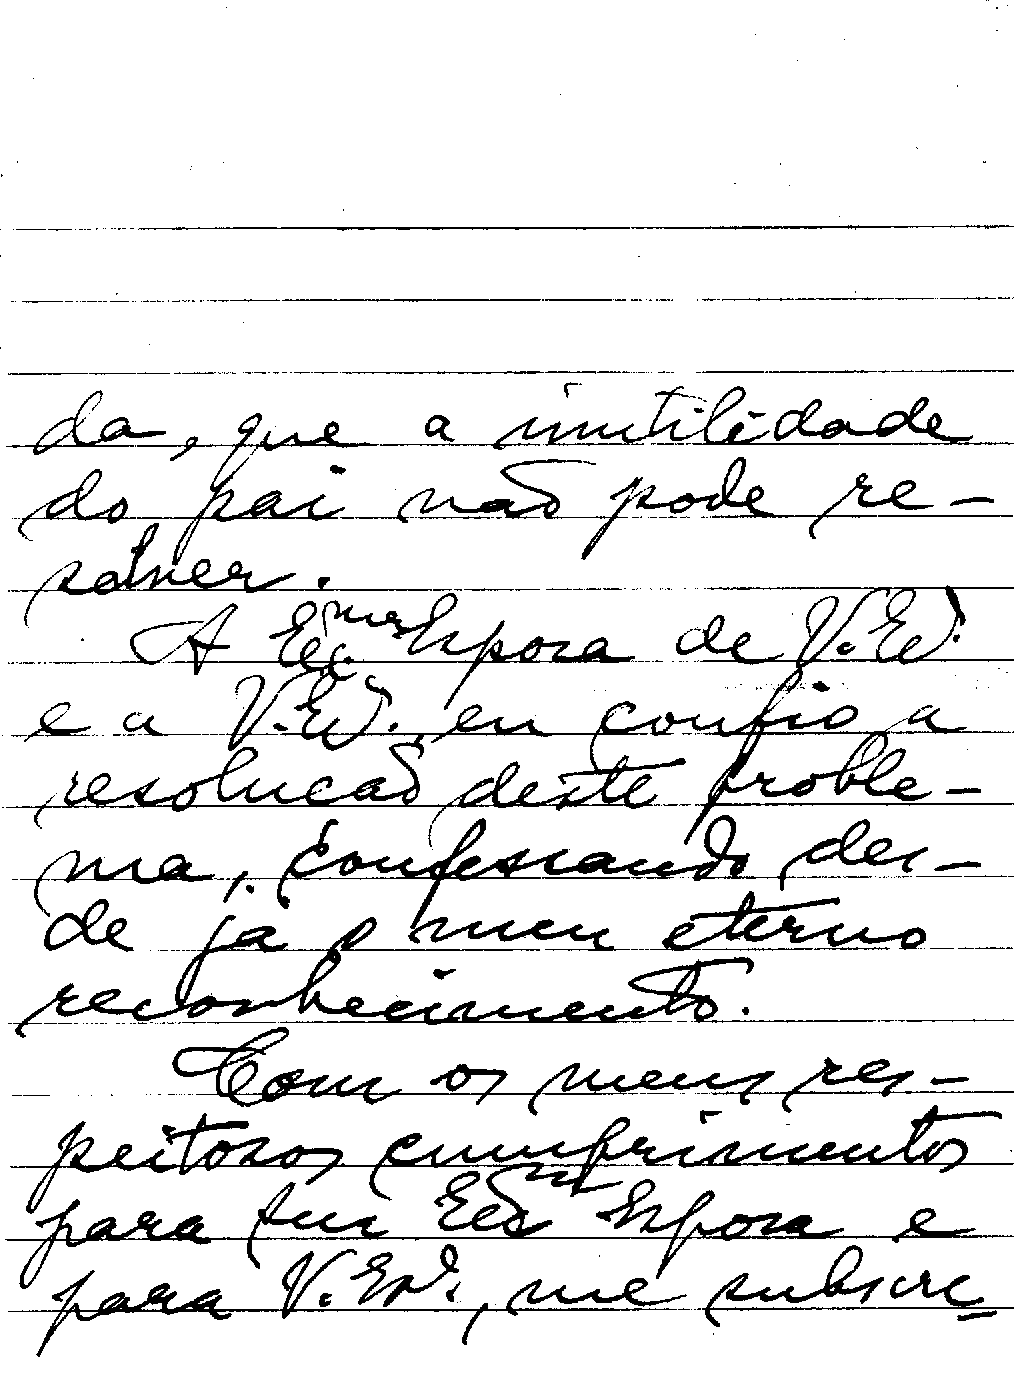 da, que a inutilidade
do pai não pode re-
solver.
A Exc.ma Esposa de V. Ex.ª
e a V. Ex.ª, eu confio a
resolucão deste proble-
ma, confessando des-
de já o meu eterno
reconhecimento.
Com os meus res-
peitosos cumprimentos
para sua Exc.ma Esposa e
para V. Ex.ª, me subscre-